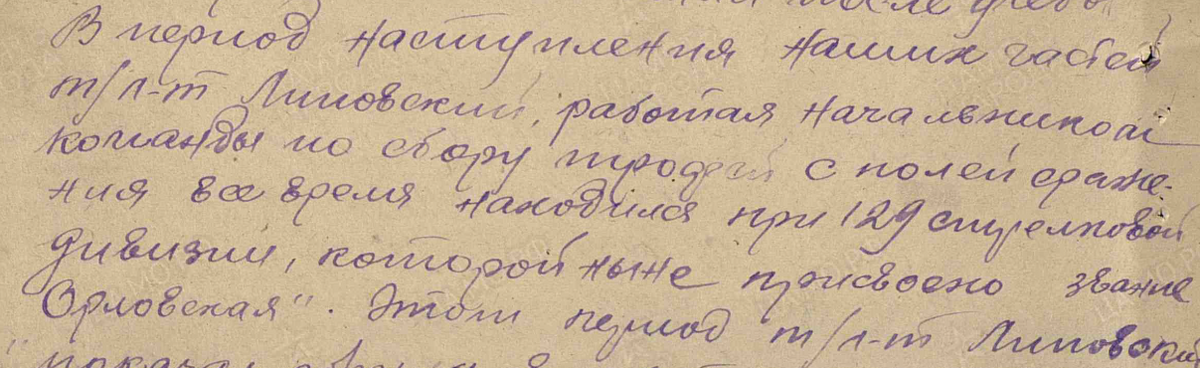 после
В период наступления наших частей
т/л-т Липовский, работая начальником
команды по сбору трофей с полей сраже-
ния все время находился при 129 стрелковой
дивизии, которой ныне присвоено звание
Орловская". Этот период т/л-т Липовский
"показал